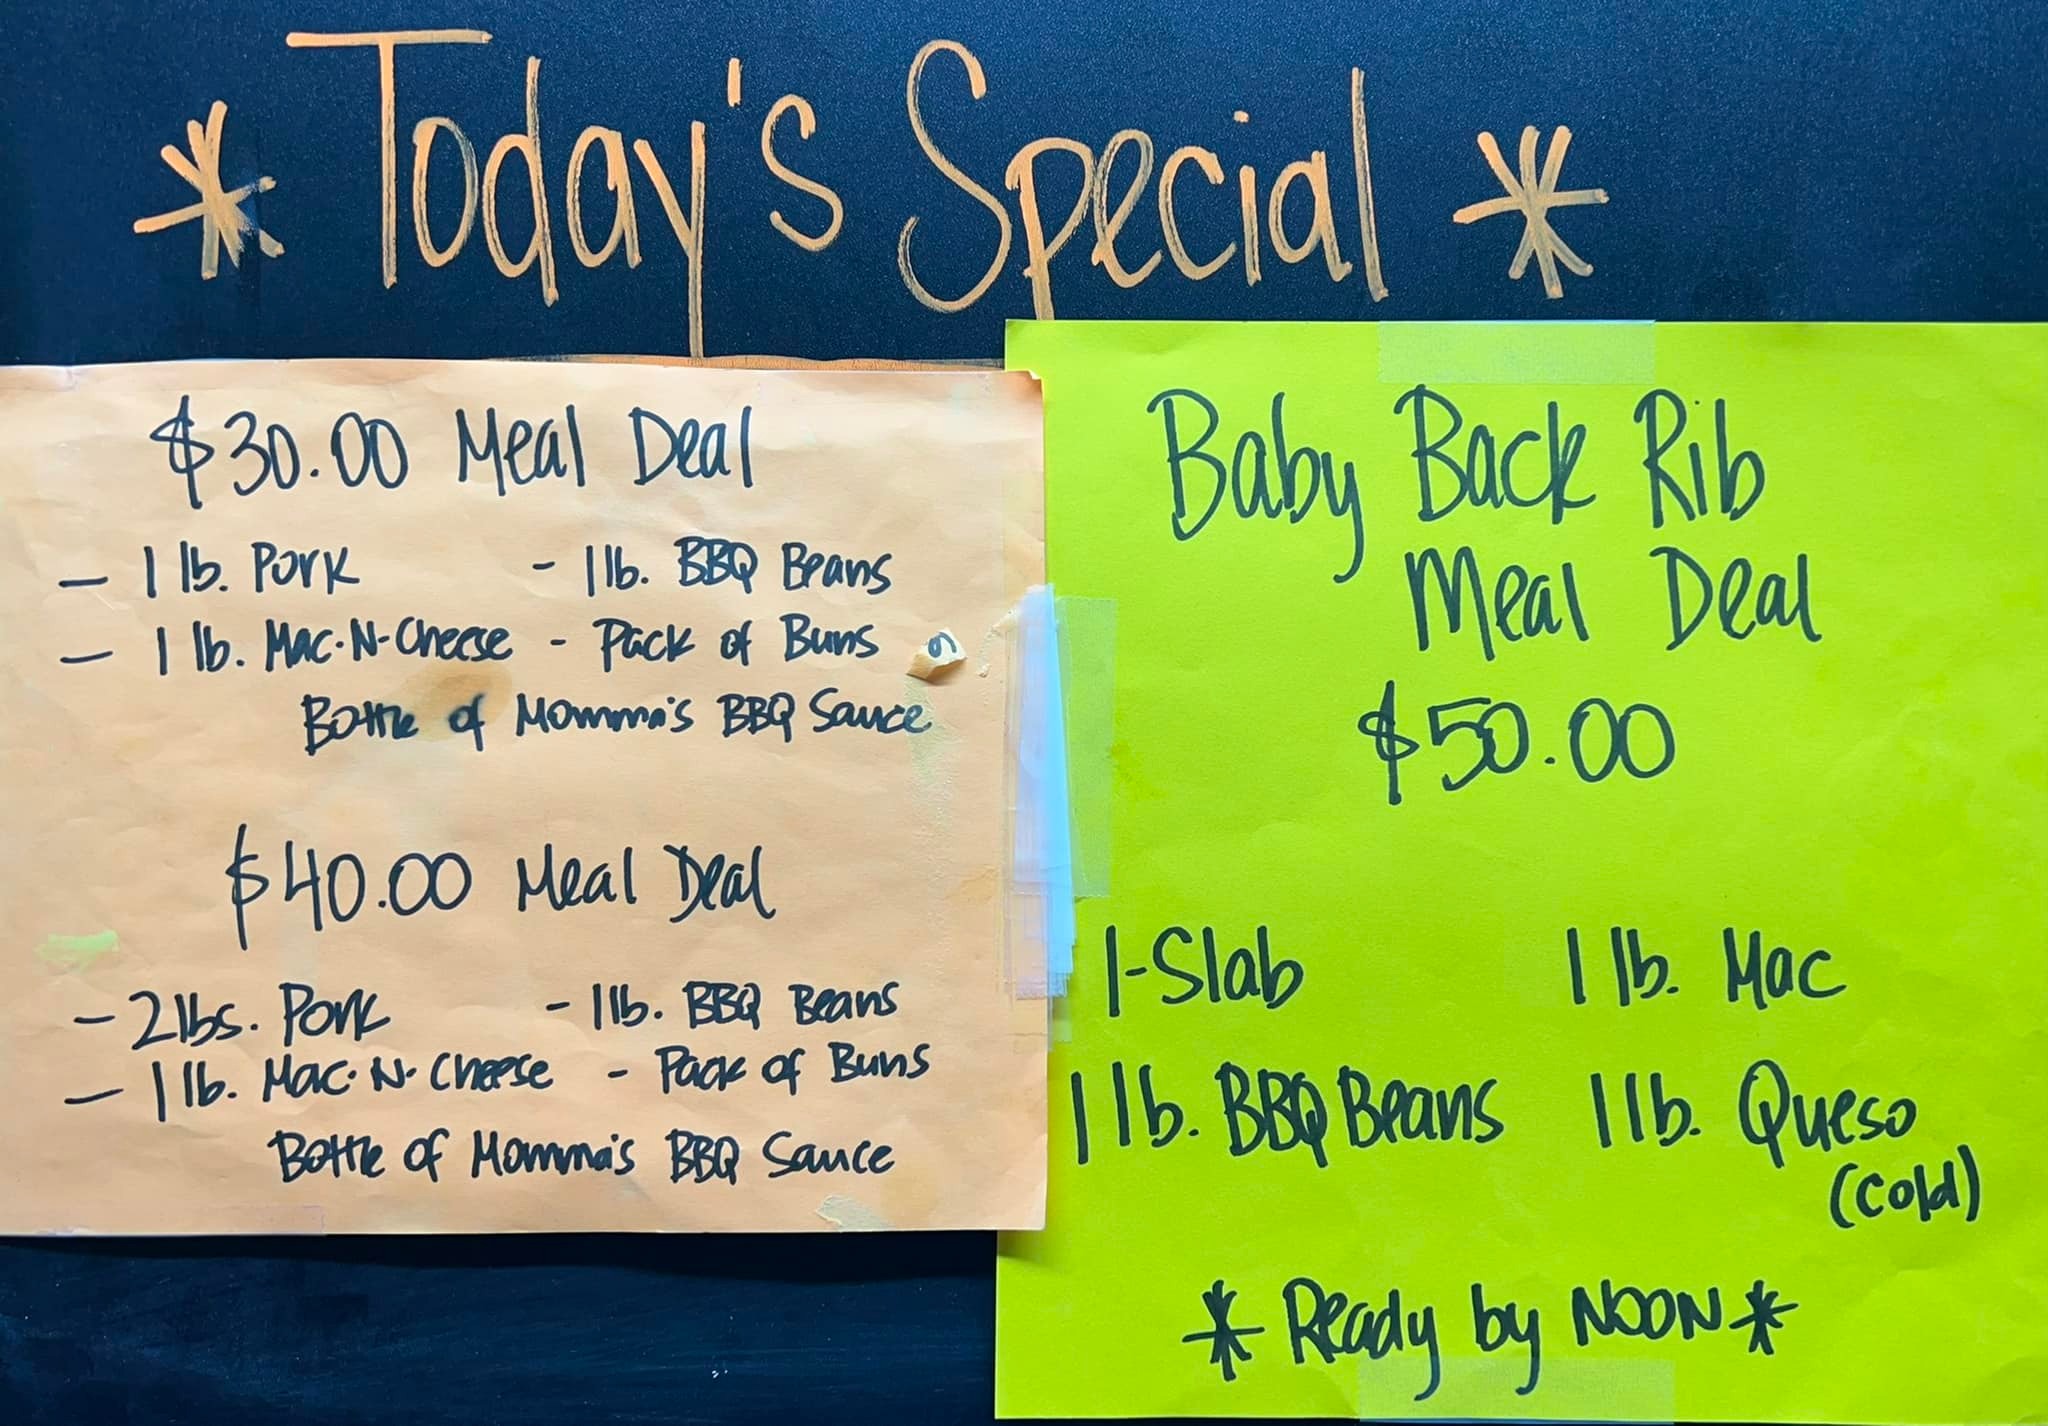 * Today's Special *
$30.00 Meal Deal
- 1 lb. Pork - 1 lb. BBQ Beans
- 1 lb. Mac-N-Cheese - Pack of Buns
Bottle of Momma's BBQ Sauce
$40.00 Meal Deal
- 2 lbs. Pork - 1 lb. BBQ Beans
- 1 lb. Mac-N-Cheese - Pack of Buns
Bottle of Momma's BBQ Sauce
Baby Back Rib
Meal Deal
$50.00
1-Slab 1 lb. Mac
1 lb. BBQ Beans 1 lb. Queso
(cold)
* Ready by NOON *